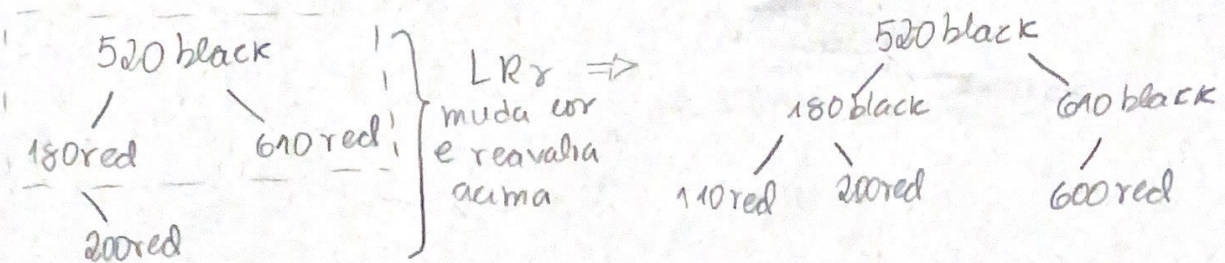 520 black
180 red 610 red
200 red
LRr ⇒
muda cor
e reavalia
acima
520 black
180 black 610 black
110 red 200 red 600 red